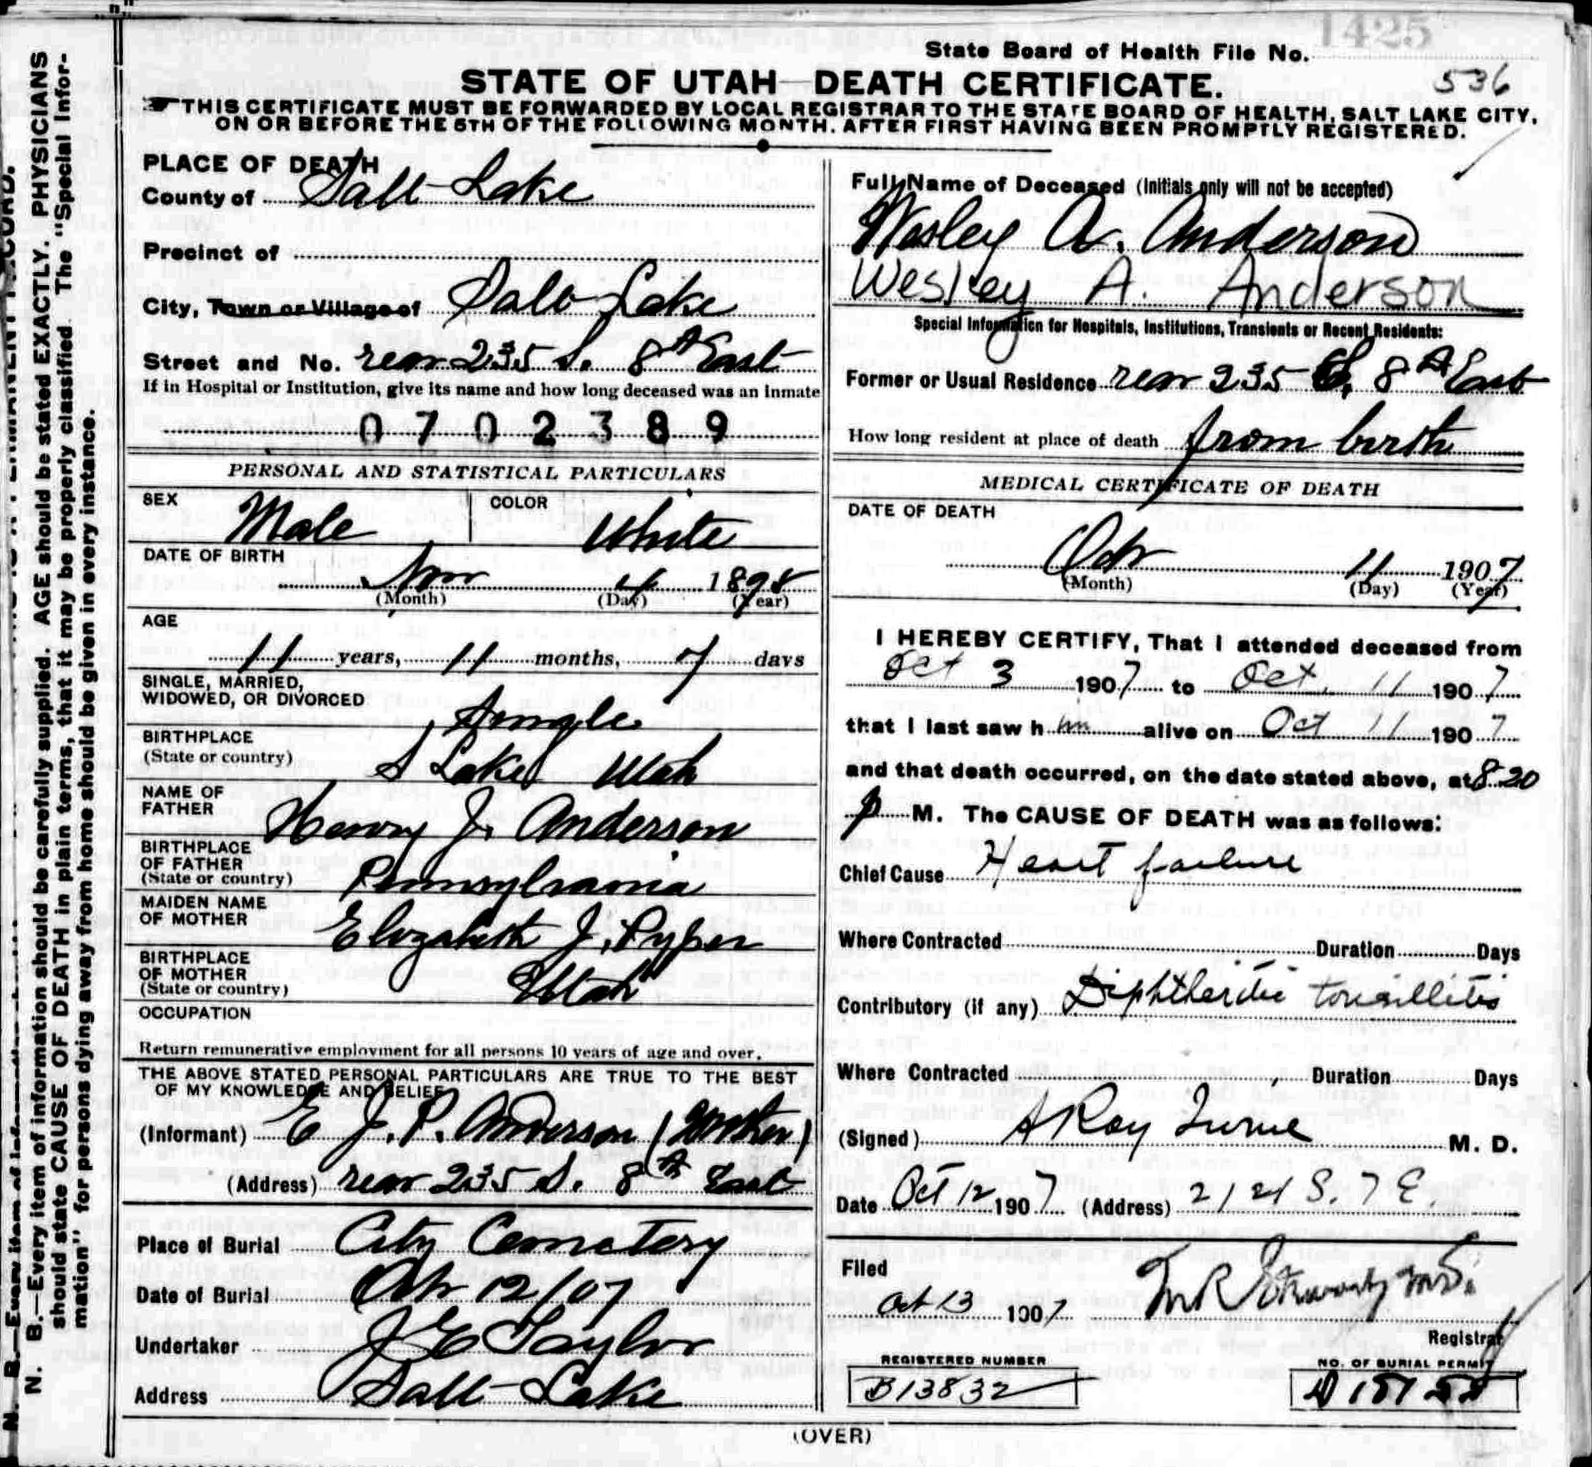 1425
State Board of Health File No.
536
STATE OF UTAH—DEATH CERTIFICATE.
THIS CERTIFICATE MUST BE FORWARDED BY LOCAL REGISTRAR TO THE STATE BOARD OF HEALTH, SALT LAKE CITY,
ON OR BEFORE THE 5TH OF THE FOLLOWING MONTH. AFTER FIRST HAVING BEEN PROMPTLY REGISTERED.
N. B.—Every item of information should be carefully supplied. AGE should be stated EXACTLY. PHYSICIANS
should state CAUSE OF DEATH in plain terms, that it may be properly classified. The "Special Infor-
mation" for persons dying away from home should be given in every instance.
PLACE OF DEATH
County of Salt Lake
Precinct of
City, Town or Village of Salt Lake
Street and No. rear 235 S. 8th East
If in Hospital or Institution, give its name and how long deceased was an inmate
0702389
PERSONAL AND STATISTICAL PARTICULARS
SEX Male COLOR White
DATE OF BIRTH Nov 4 1895
(Month) (Day) (Year)
AGE
11 years, 11 months, 7 days
SINGLE, MARRIED,
WIDOWED, OR DIVORCED Single
BIRTHPLACE
(State or country) S Lake Utah
NAME OF
FATHER Henry J. Anderson
BIRTHPLACE
OF FATHER
(State or country) Pennsylvania
MAIDEN NAME
OF MOTHER Elizabeth J. Pyper
BIRTHPLACE
OF MOTHER
(State or country) Utah
OCCUPATION
Return remunerative employment for all persons 10 years of age and over.
THE ABOVE STATED PERSONAL PARTICULARS ARE TRUE TO THE BEST
OF MY KNOWLEDGE AND BELIEF
(Informant) E J. P. Anderson (Mother)
(Address) rear 235 S. 8th East
Place of Burial City Cemetery
Date of Burial Oct 12/07
Undertaker J E Taylor
Address Salt Lake
Full Name of Deceased (Initials only will not be accepted)
Wesley A. Anderson
Wesley A. Anderson
Special Information for Hospitals, Institutions, Transients or Recent Residents:
Former or Usual Residence rear 235 S. 8th East
How long resident at place of death from birth
MEDICAL CERTIFICATE OF DEATH
DATE OF DEATH
Oct 11 1907
(Month) (Day) (Year)
I HEREBY CERTIFY, That I attended deceased from
Oct 3 1907 to Oct. 11 1907
that I last saw him alive on Oct 11 1907
and that death occurred, on the date stated above, at 8.20
p M. The CAUSE OF DEATH was as follows:
Chief Cause Heart failure
Where Contracted Duration Days
Contributory (if any) Diphtheritic tonsillitis
Where Contracted Duration Days
(Signed) Roy M. D.
Date Oct 12 1907 (Address) 2121 S. 7 E.
Filed
Oct 13 1907
Registrar
REGISTERED NUMBER
B13832
NO. OF BURIAL PERMIT
(OVER)